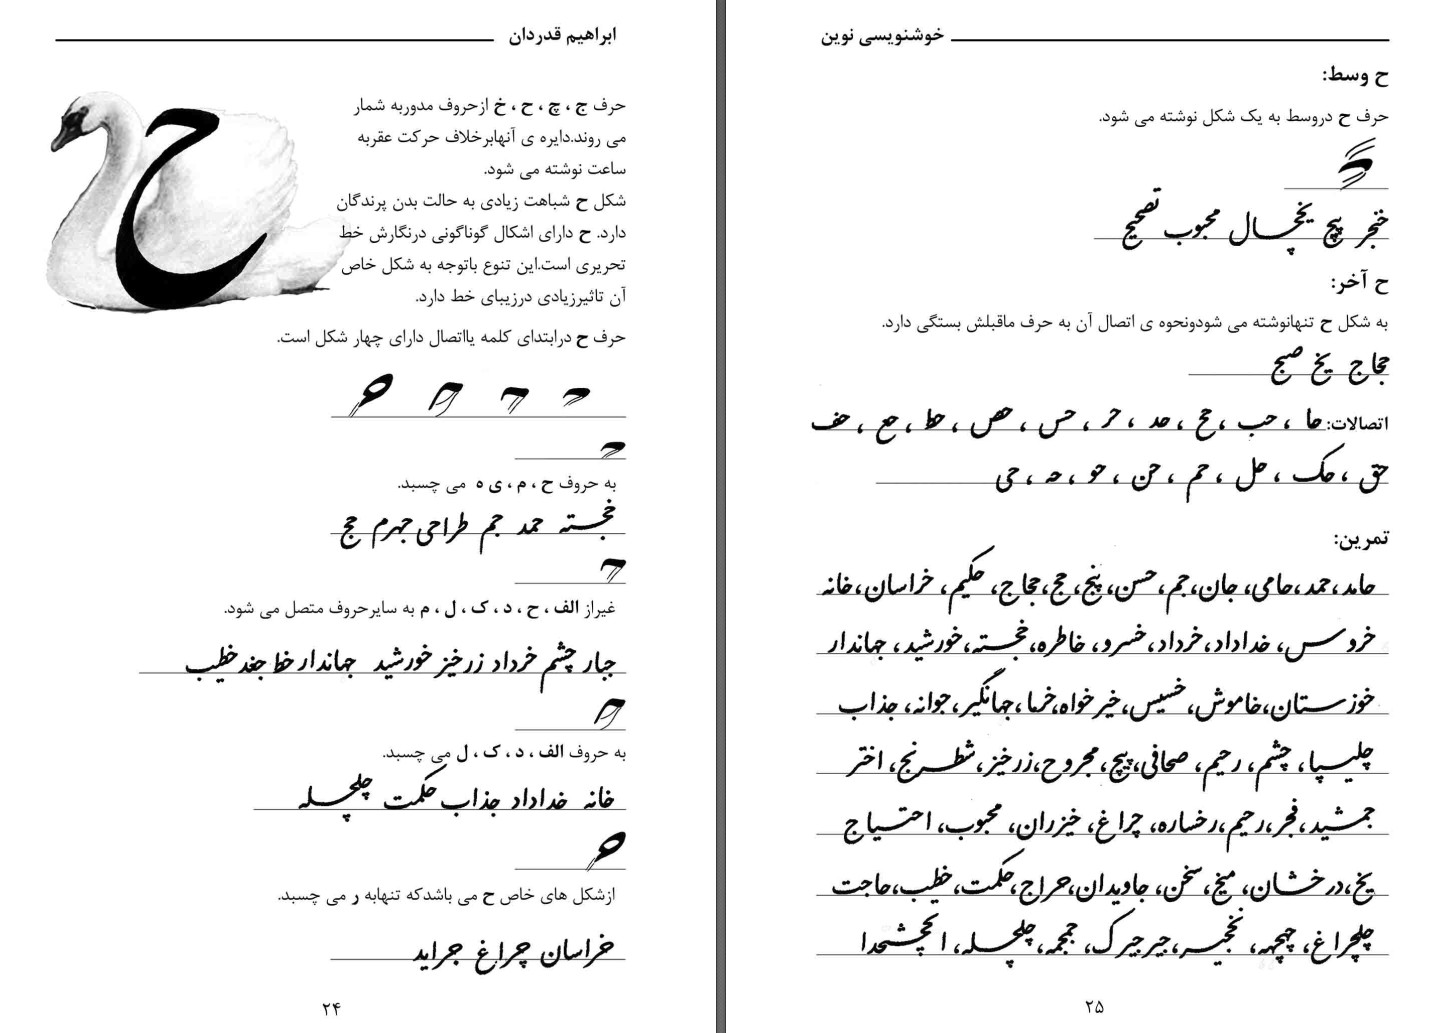 ابراهیم قدردان
حرف ج ، چ ، ح ، خ ازحروف مدوربه شمار
می روند.دایره ی آنهابرخلاف حرکت عقربه
ساعت نوشته می شود.
شکل ح شباهت زیادی به حالت بدن پرندگان
دارد. ح دارای اشکال گوناگونی درنگارش خط
تحریری است.این تنوع باتوجه به شکل خاص
آن تاثیرزیادی درزیبای خط دارد.
ح
حرف ح درابتدای کلمه یااتصال دارای چهار شکل است.
به حروف ح ، م ، ی ه می چسبد.
خجسته حمد جم طراحی جهرم حج
غیراز الف ، ح ، د ، ک ، ل ، م به سایرحروف متصل می شود.
جبار چشم خرداد زرخیز خورشید جهاندار خط جغد خطیب
به حروف الف ، د ، ک ، ل می چسبد.
خانه خداداد جذاب حکمت چلچله
ازشکل های خاص ح می باشدکه تنهابه ر می چسبد.
خراسان چراغ جراید
۲۴
خوشنویسی نوین
ح وسط:
حرف ح دروسط به یک شکل نوشته می شود.
خنجر پیچ یخچال محبوب تصحیح
ح آخر:
به شکل ح تنهانوشته می شودونحوه ی اتصال آن به حرف ماقبلش بستگی دارد.
حجاج یخ صبح
اتصالات: حا ، حب ، حج ، حد ، حر ، حس ، حص ، حط ، حع ، حف
حق ، حک ، حل ، حم ، حن ، حو ، حه ، حی
تمرین:
حامد، حمد، حامی، جان، جم، حسن، پنج، حج، حجاج، حکیم، خراسان، خانه
خروس، خداداد، خرداد، خسرو، خاطره، خجسته، خورشید، جهاندار
خوزستان، خاموش، خسیس، خیرخواه، خرما، جهانگیر، جوانه، جذاب
چلیپا، چشم، رحیم، صحافی، پیچ، مجروح، زرخیز، شطرنج، اختر
جمشید، فجر، رحیم، رخساره، چراغ، خیزران، محبوب، احتیاج
یخ، درخشان، میخ، سخن، جاویدان، حراج، حکمت، خطیب، حاجت
چلچراغ، چهچهه، نخجیر، جیرجیرک، جمجمه، چلچله،
۲۵